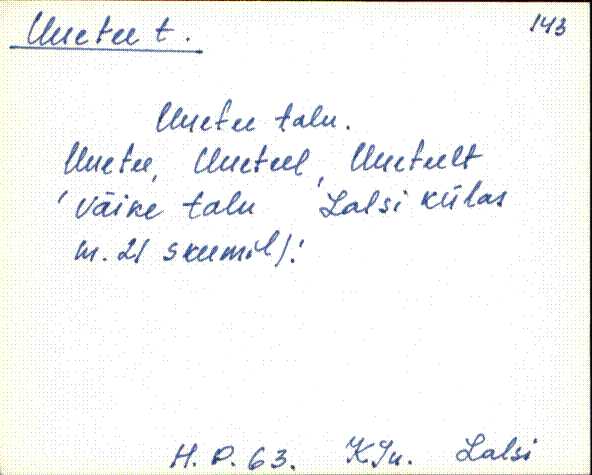 Uuetee t. 143
Uuetee talu.
Uuetee, Uueteel, Uueteelt
'väike talu Lalsi külas
nr. 21 skeemil).'
H. P. 63. KJn. Lalsi